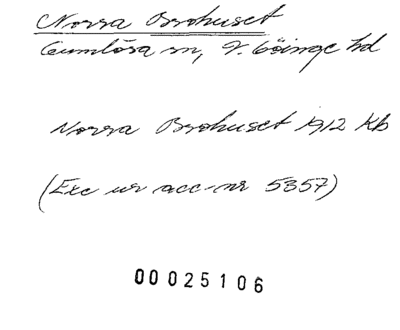 Norra Brohuset
Gumlösa sn, V. Göinge hd
Norra Brohuset 1912 Kb
(Exc ur acc-nr 5357)
00025106